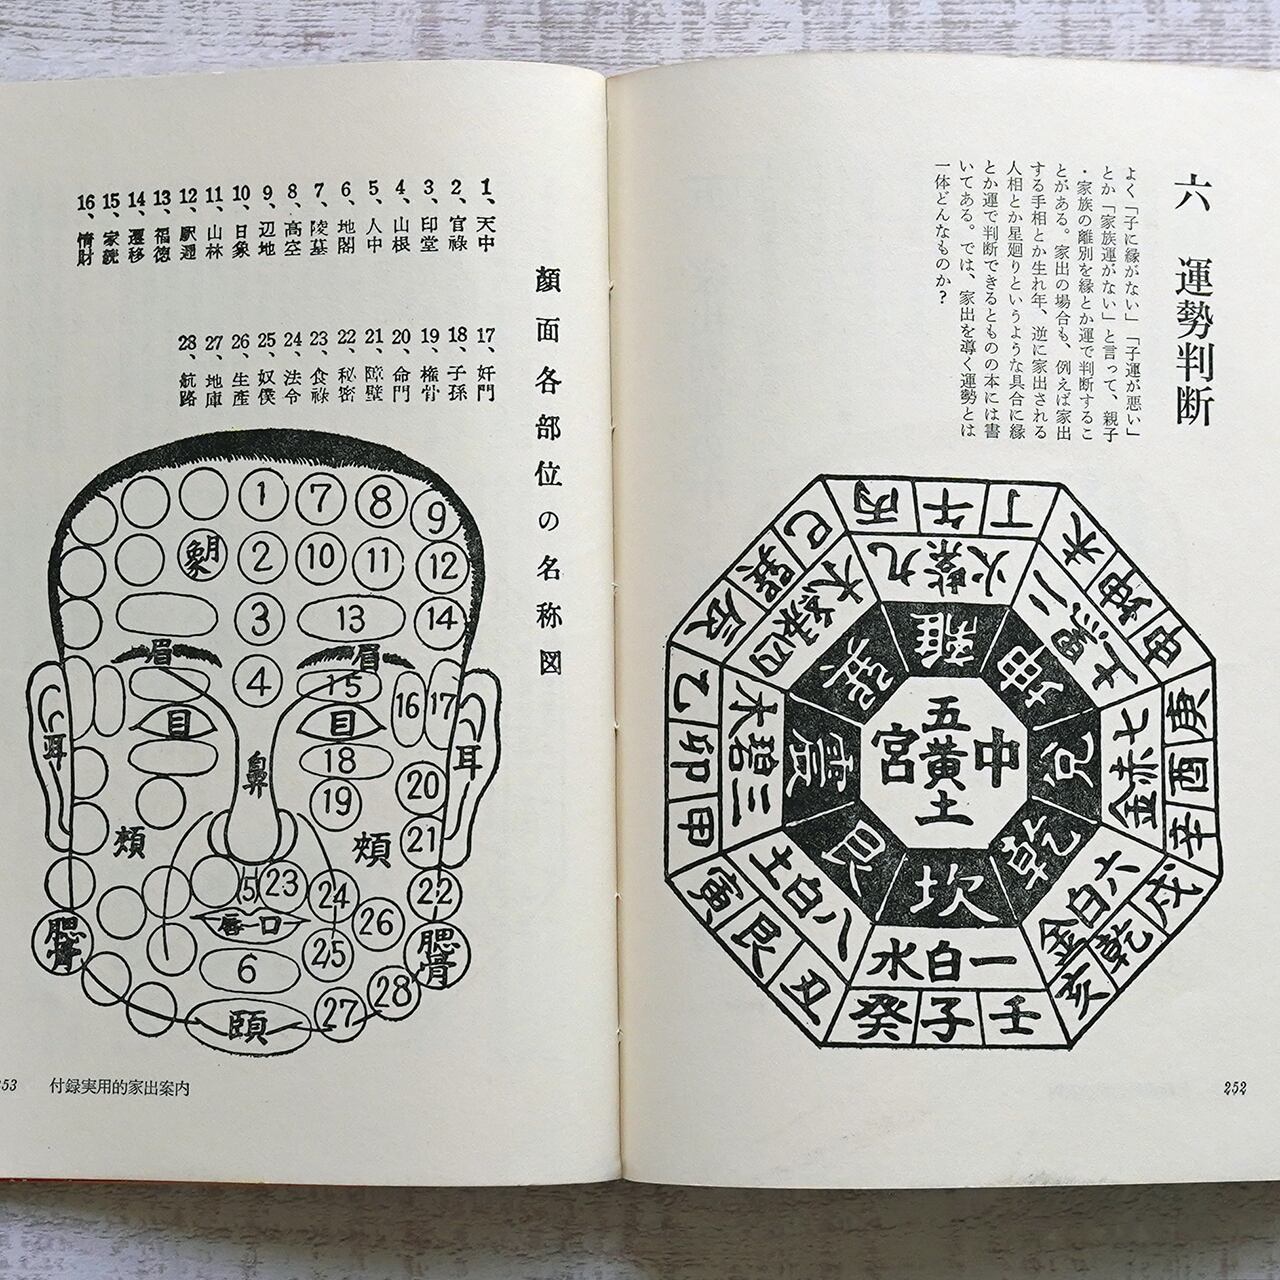 六 運勢判断
よく「子に縁がない」「子運が悪い」
とか「家族運がない」と言って、親子
・家族の離別を縁とか運で判断するこ
とがある。家出の場合も、例えば家出
する手相とか生れ年、逆に家出される
人相とか星廻りというような具合に縁
とか運で判断できるとものの本には書
いてある。では、家出を導く運勢とは
一体どんなものか?
丙
午
丁
未
坤
申
庚
酉
辛
戌
乾
亥
壬
子
癸
丑
艮
寅
甲
卯
乙
辰
巽
巳
九紫火
二黒土
七赤金
六白金
一白水
八白土
三碧木
四緑木
離
坤
兌
乾
坎
艮
震
巽
中
五黄土
宮
252
顔面各部位の名称図
1、天中
2、官祿
3、印堂
4、山根
5、人中
6、地閣
7、陵墓
8、高空
9、辺地
10、日象
11、山林
12、駅遞
13、福徳
14、遷移
15、家続
16、情財
17、奸門
18、子孫
19、権骨
20、命門
21、障壁
22、秘密
23、食祿
24、法令
25、奴僕
26、生產
27、地庫
28、航路
1 7 8 9
月象 2 10 11 12
3 13 14
眉 4 眉
15 16 17
目 目
耳 鼻 18 耳
19 20
頬 頬 21
5 23 24 22
腮骨 唇 口 26 腮骨
6 25
頤 27 28
253 付録実用的家出案内